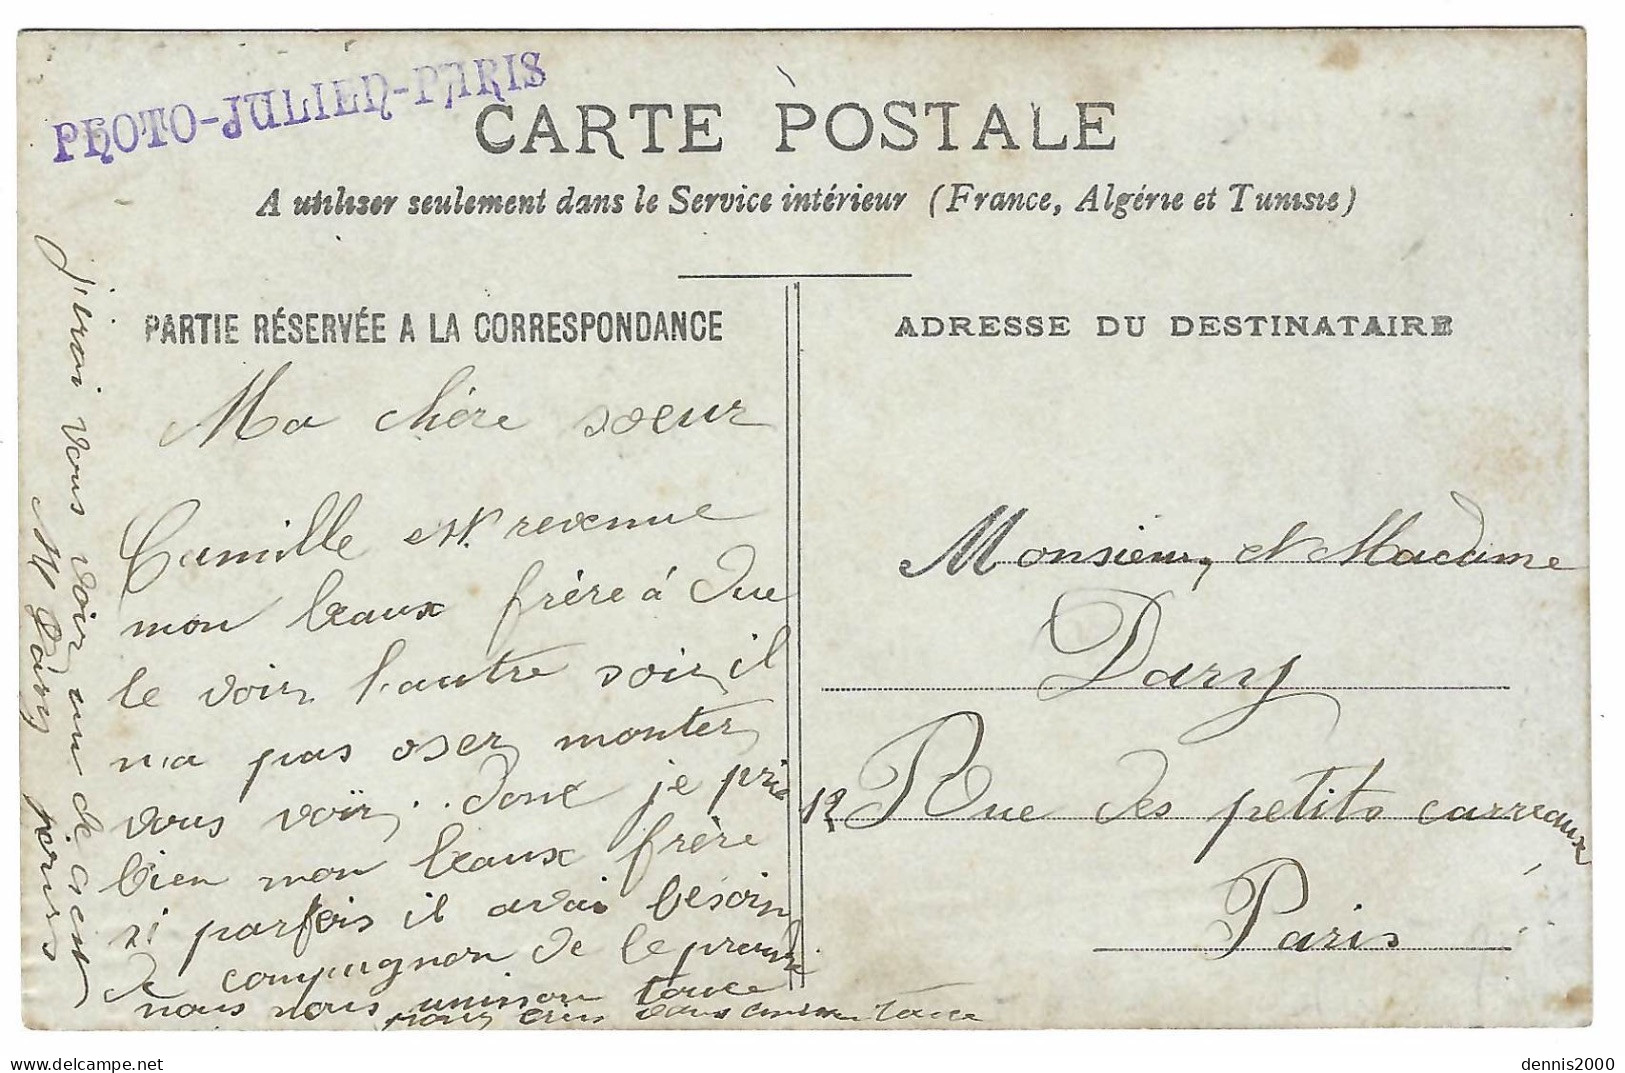 PHOTO-JULIEN-PARIS
CARTE POSTALE
A utiliser seulement dans le Service intérieur (France, Algérie et Tunisie)
PARTIE RÉSERVÉE A LA CORRESPONDANCE
Ma chère soeur
Camille est revenue
mon beaux frère à Due
le voir l'autre soir il
n'a pas oser monter
vous voir.. donc je prie
bien mon beaux frère
si parfois il avai besoin
de compagnon de le prendre
nous nous
nous dans
J'irai vous voir un de ces
Dary jours
ADRESSE DU DESTINATAIRE
Monsieur, et Madame
Dary
12 Rue des petits carreaux
Paris
dennis2000